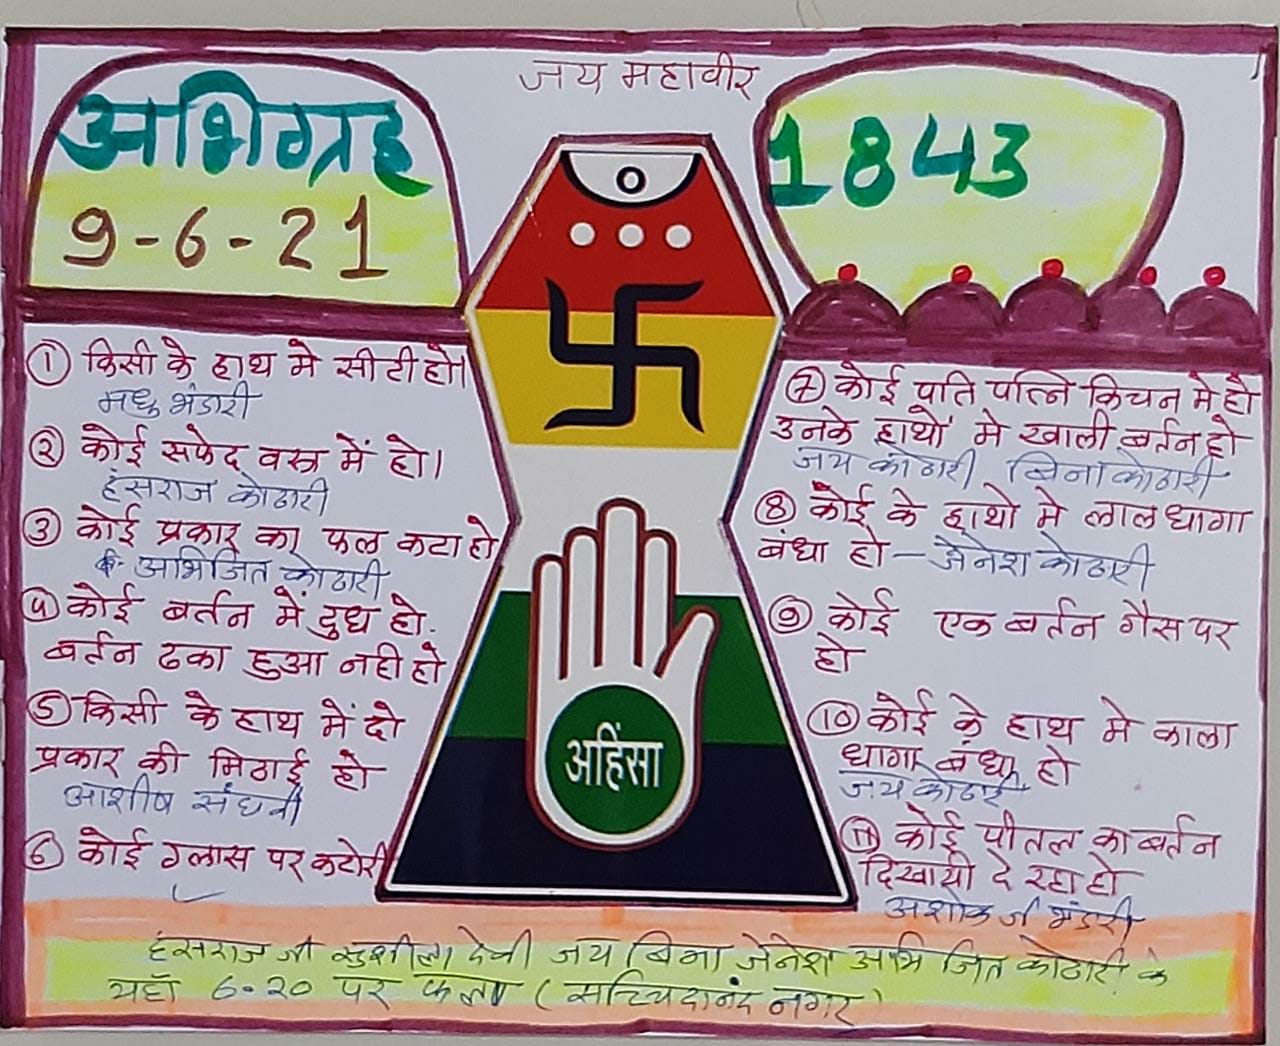 जय महावीर
अभिग्रह
9-6-21
1843
① किसी के हाथ मे सीटी हो।
मधु भंडारी
② कोई सफेद वस्त्र में हो।
हंसराज कोठारी
③ कोई प्रकार का फल कटा हो
अभिजित कोठारी
④ कोई बर्तन में दुध हो.
बर्तन ढका हुआ नही हो
⑤ किसी के हाथ में दो
प्रकार की मिठाई हो
आशीष संघवी
⑥ कोई ग्लास पर कटोरी
अहिंसा
⑦ कोई पति पत्नि किचन मे हो
उनके हाथों मे खाली बर्तन हो
जय कोठारी बिना कोठारी
⑧ कोई के हाथो मे लाल धागा
बंधा हो - जेनेश कोठारी
⑨ कोई एक बर्तन गैस पर
हो
⑩ कोई के हाथ मे काला
धागा बंधा हो
जय कोठारी
⑪ कोई पीतल का बर्तन
दिखायी दे रहा हो
अशोक जी भंडारी
हंसराज जी सुशीला देवी जय बिना जेनेश अभिजित कोठारी के
यहाँ 6.20 पर फला (सच्चिदानंद नगर)